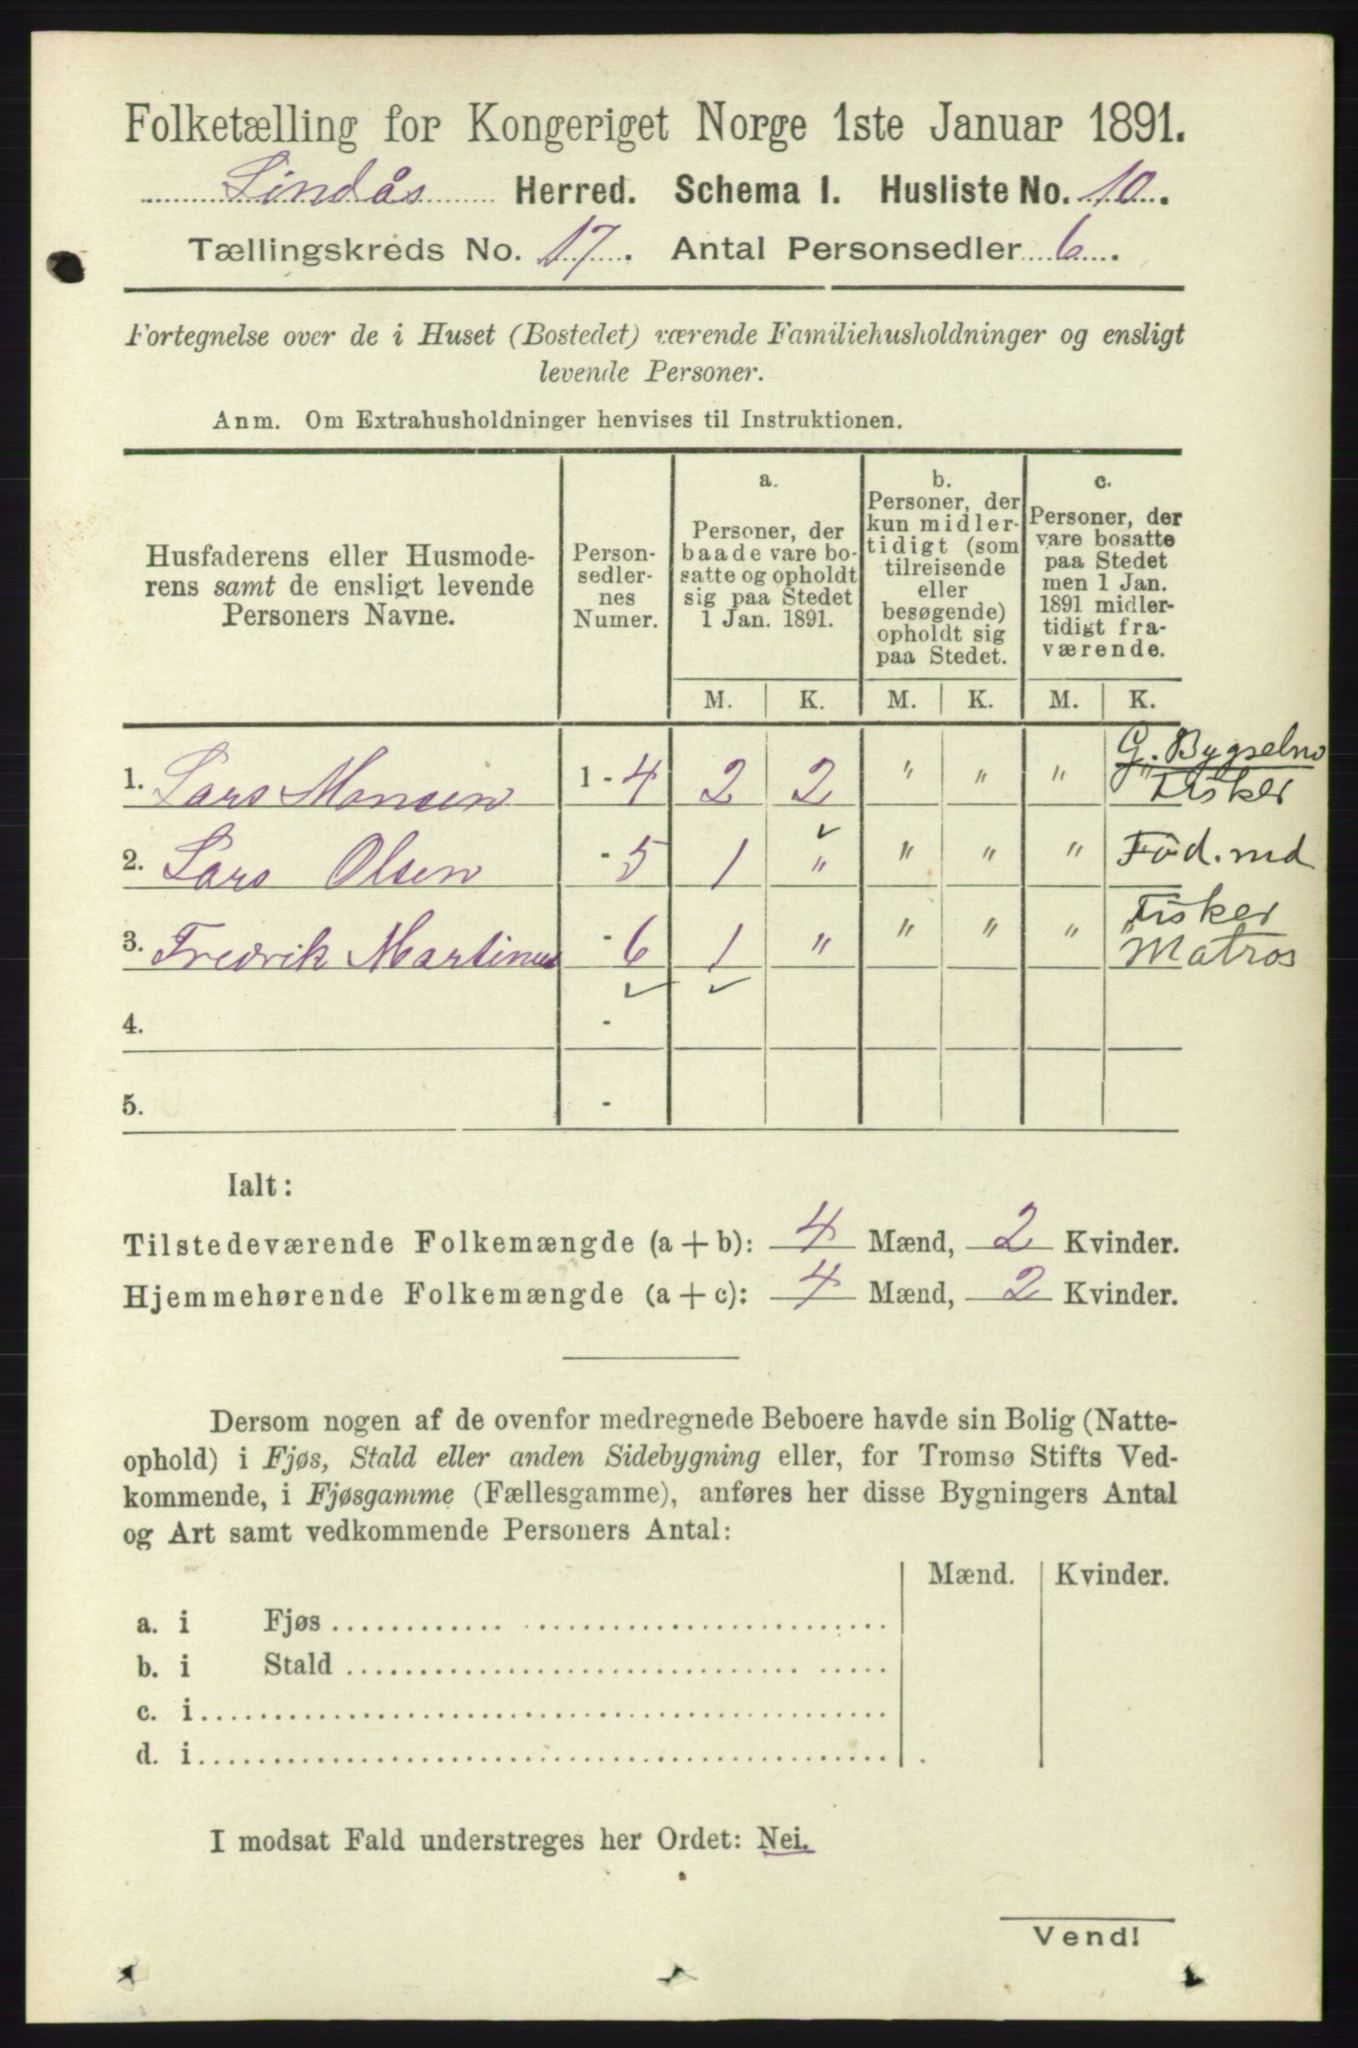 Folketælling for Kongeriget Norge 1ste Januar 1891.
Lindås Herred. Schema I. Husliste No. 10.
Tællingskreds No. 17. Antal Personsedler 6.
Fortegnelse over de i Huset (Bostedet) værende Familiehusholdninger og ensligt
levende Personer.
Anm. Om Extrahusholdninger henvises til Instruktionen.
Husfaderens eller Husmode-
rens samt de ensligt levende
Personers Navne.
Person-
sedler-
nes
Numer.
a.
Personer, der
baade vare bo-
satte og opholdt
sig paa Stedet
1 Jan. 1891.
b.
Personer, der
kun midler-
tidigt (som
tilreisende
eller
besøgende)
opholdt sig
paa Stedet.
c.
Personer, der
vare bosatte
paa Stedet
men 1 Jan.
1891 midler-
tidigt fra-
værende.
M. K. M. K. M. K.
G. Bygselmd
1. Lars Monsen 1 - 4 2 2 " " " Fisker
2. Lars Olsen - 5 1 " " " " Föd. md
Fisker
3. Fredrik Martinus - 6 1 " " " " Matros
4. -
5. -
Ialt:
Tilstedeværende Folkemængde (a + b): 4 Mænd, 2 Kvinder.
Hjemmehørende Folkemængde (a + c): 4 Mænd, 2 Kvinder.
Dersom nogen af de ovenfor medregnede Beboere havde sin Bolig (Natte-
ophold) i Fjøs, Stald eller anden Sidebygning eller, for Tromsø Stifts Ved-
kommende, i Fjøsgamme (Fællesgamme), anføres her disse Bygningers Antal
og Art samt vedkommende Personers Antal:
Mænd. Kvinder.
a. i Fjøs
b. i Stald
c. i
d. i
I modsat Fald understreges her Ordet: Nei.
Vend!